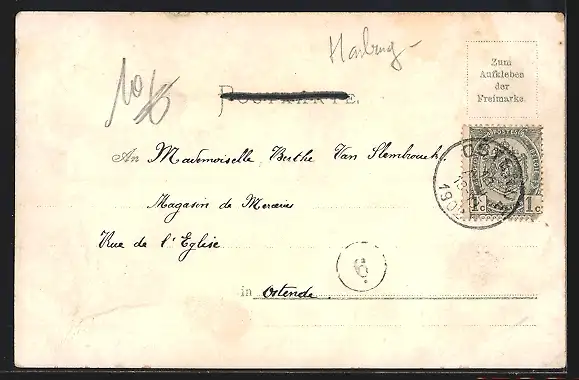 Harburg
10
Zum
Aufkleben
der
Freimarke.
POSTKARTE.
An Mademoiselle Berthe Van Slembrouck
Magasin de Merceries
Rue de l'Eglise
in Ostende.
POSTES
1c 1c
OSTE
190
6